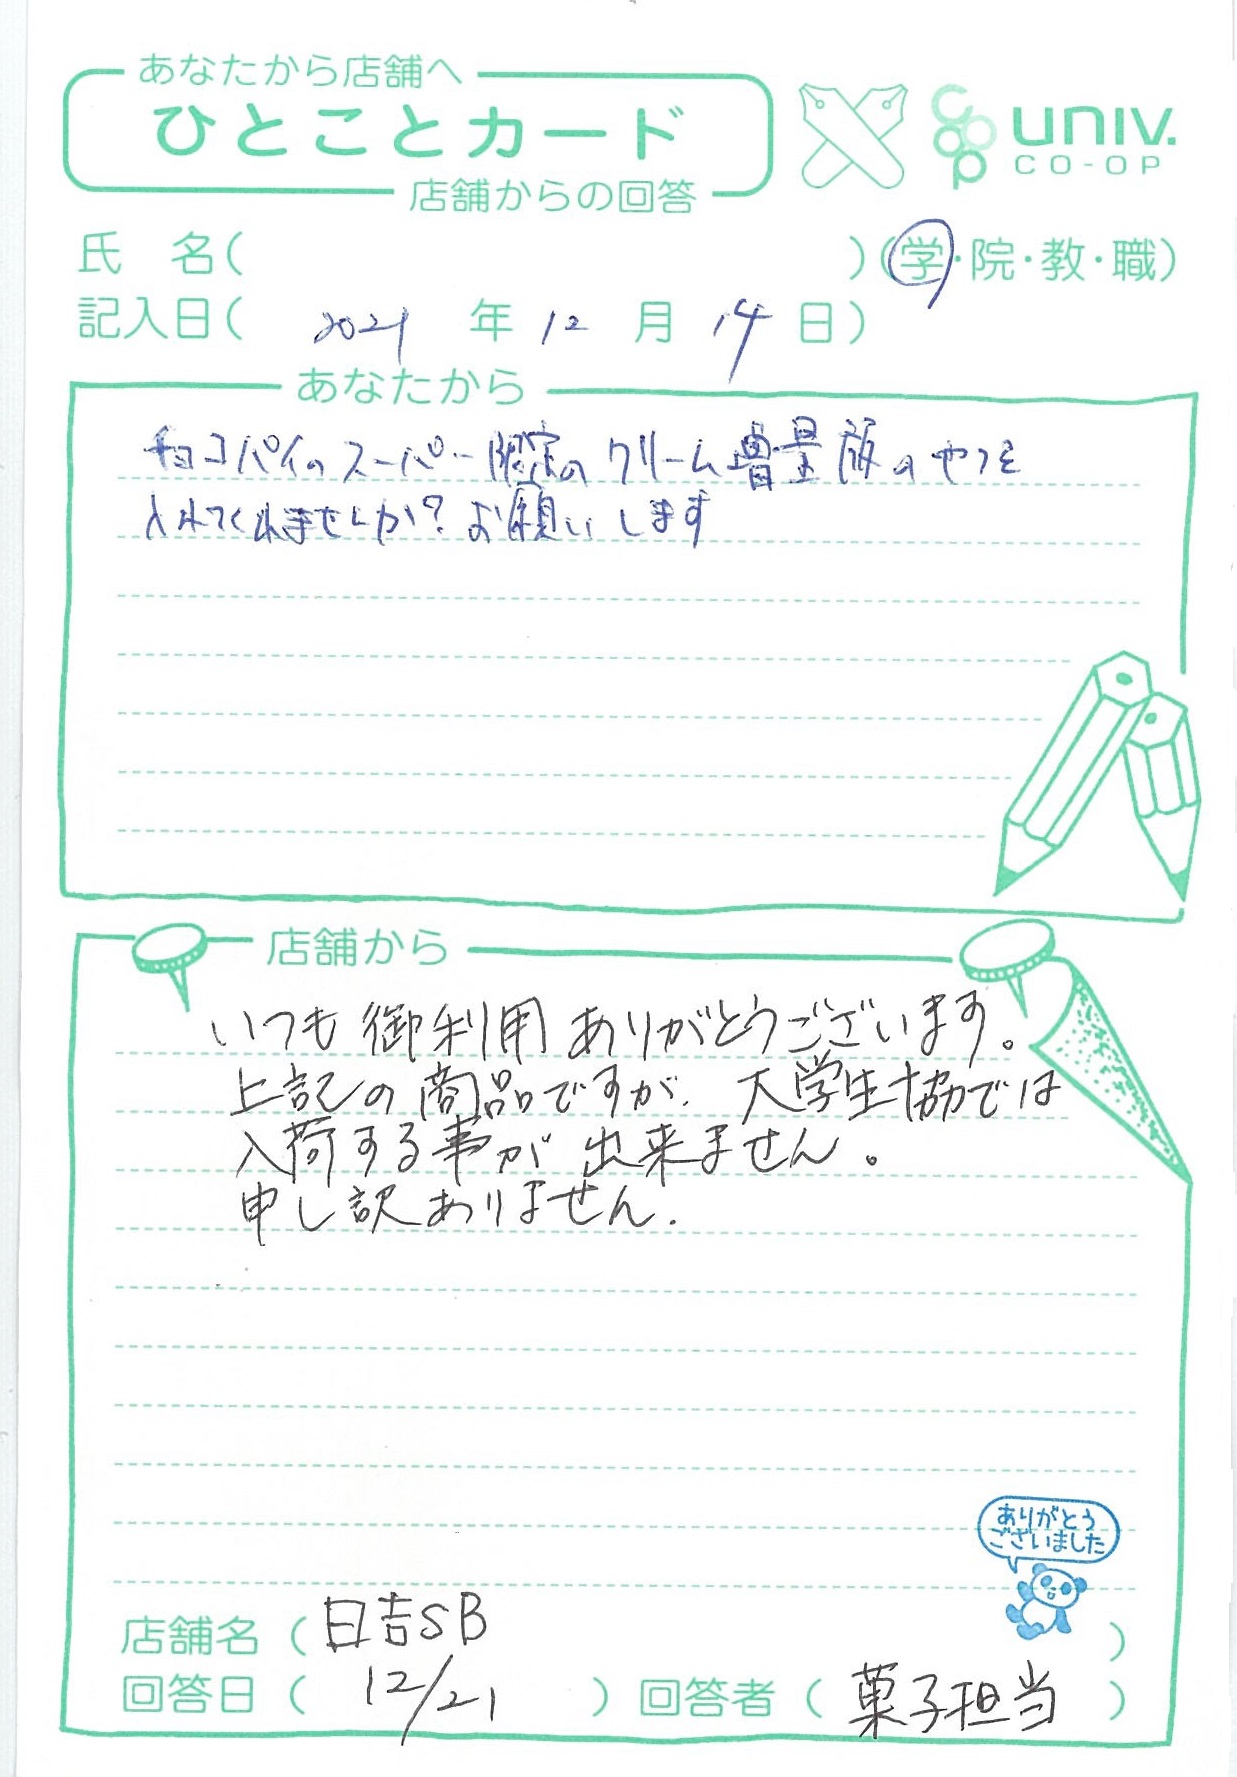 あなたから店舗へ
ひとことカード
店舗からの回答
COOP univ.
CO-OP
氏 名( )(学・院・教・職)
記入日( 2021 年 12 月 14 日)
あなたから
チョコパイのスーパー限定のクリーム増量版のやつを
入れてくれませんか?お願いします
店舗から
いつも御利用ありがとうございます。
上記の商品ですが、大学生協では
入荷する事が出来ません。
申し訳ありません.
ありがとう
ございました
店舗名(日吉SB )
回答日( 12/21 )回答者(菓子担当 )